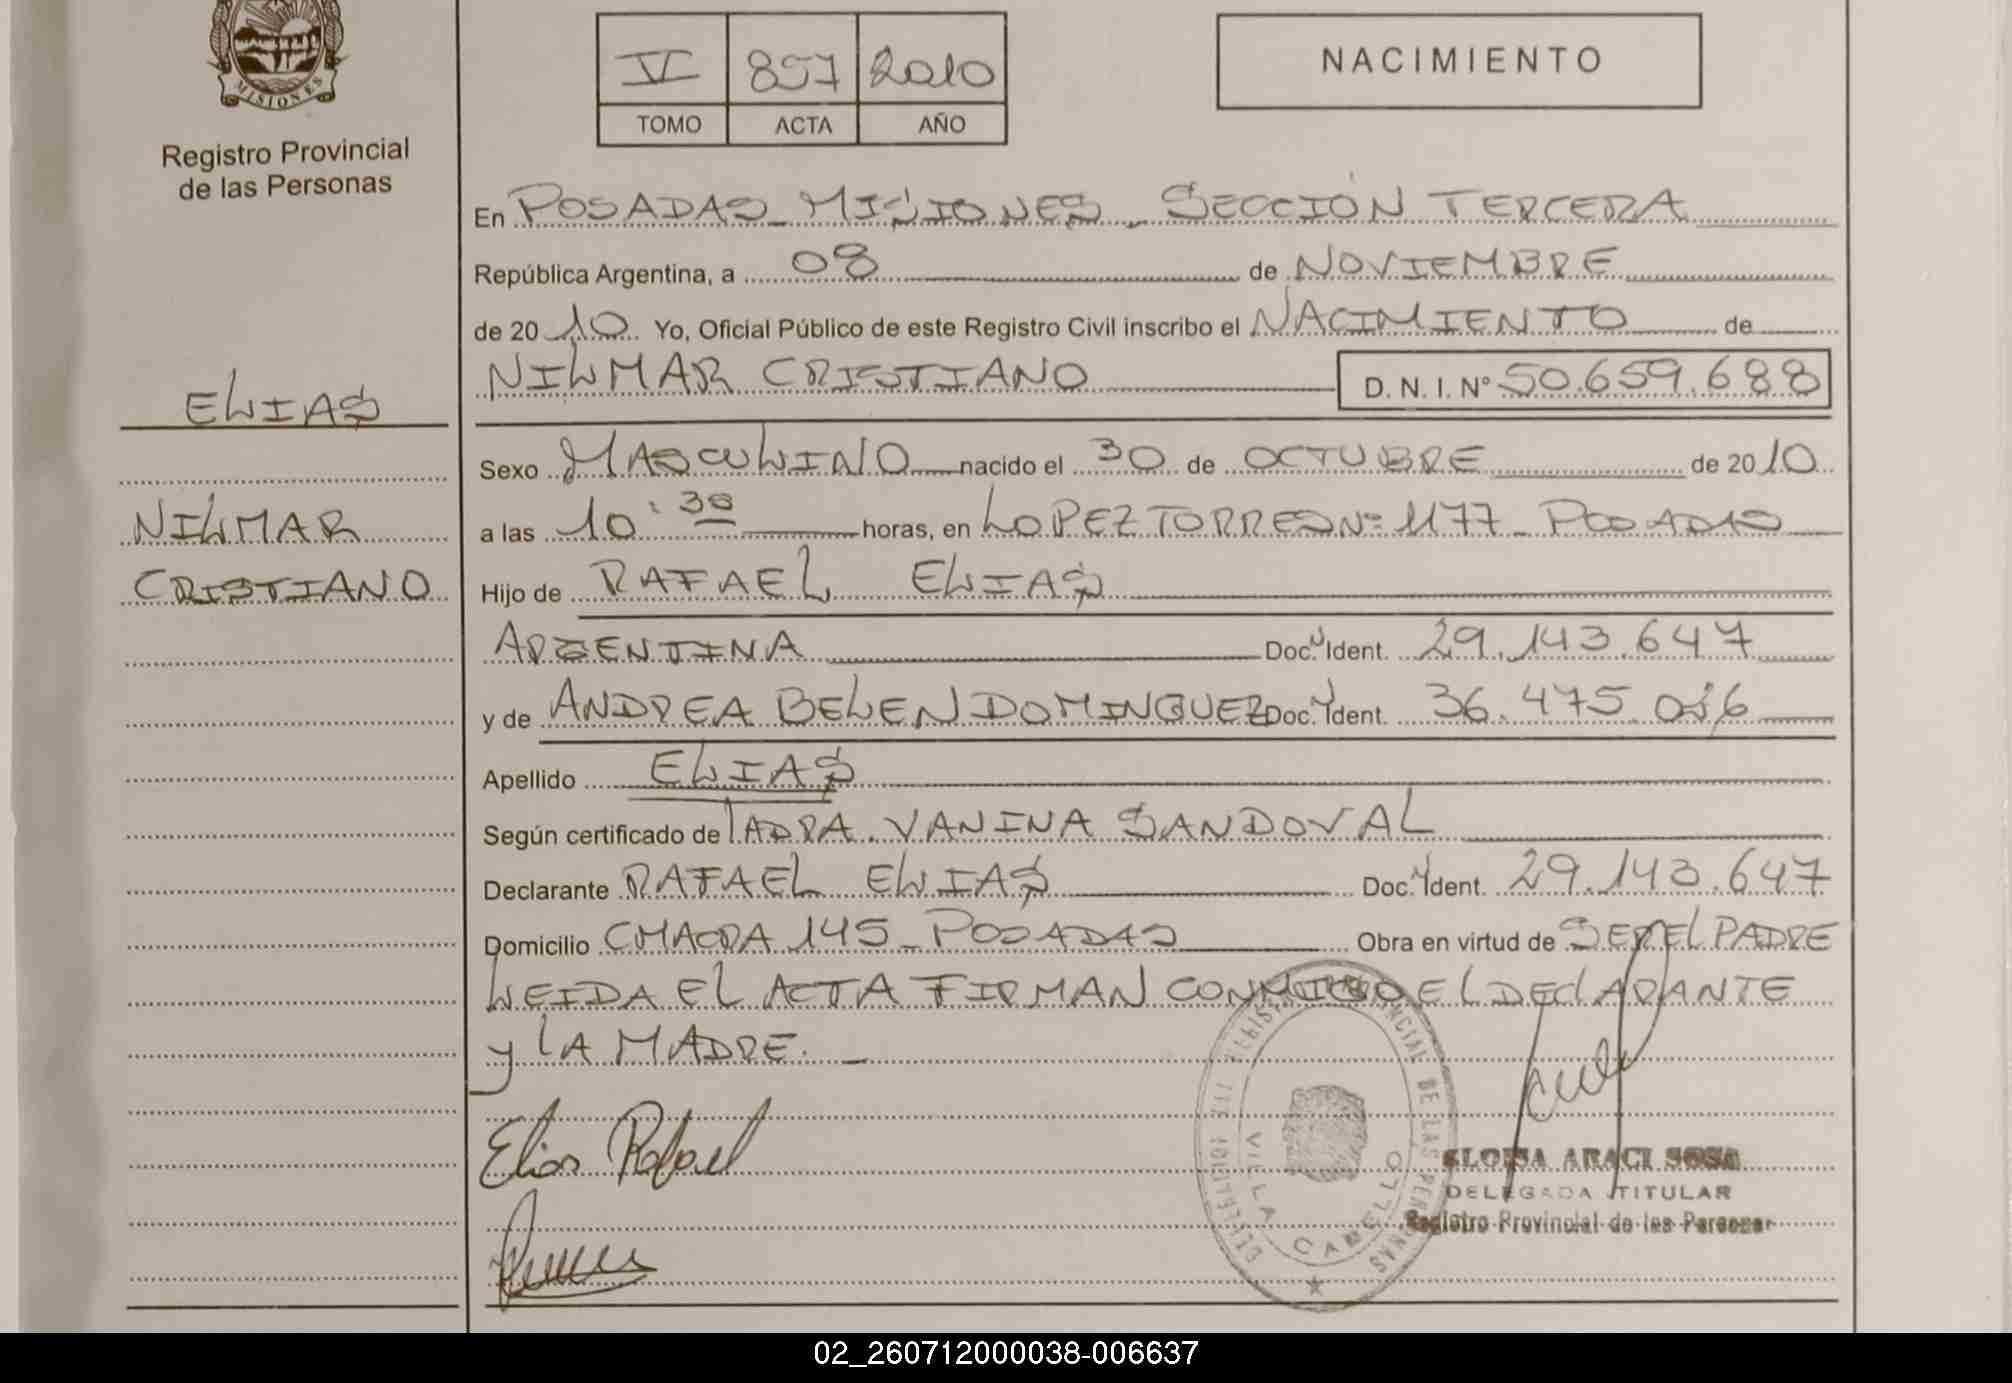 MISIONES
Registro Provincial
de las Personas
ELIAS
NILMAR
CRISTIANO
V 857 2010
TOMO ACTA AÑO
NACIMIENTO
En POSADAS - MISIONES - SECCIÓN TERCERA
República Argentina, a 08 de NOVIEMBRE
de 2010 Yo, Oficial Público de este Registro Civil inscribo el NACIMIENTO de
NILMAR CRISTIANO D. N. I. N° 50.659.688
Sexo MASCULINO nacido el 30 de OCTUBRE de 2010
a las 10:30 horas, en LOPEZ TORRES Nº 1177 - POSADAS
Hijo de RAFAEL ELIAS
ARGENTINA Doc. Ident. 29.143.647
y de ANDREA BELEN DOMINGUEZ Doc. Ident. 36.475.
Apellido ELIAS
Según certificado de LADRA. VANINA SANDOVAL
Declarante RAFAEL ELIAS Doc. Ident. 29.143.647
Domicilio CHACRA 145 - POSADAS Obra en virtud de SER EL PADRE
LEIDA EL ACTA FIRMAN CONMIGO EL DECLARANTE
Y LA MADRE. -
Elias Rafael
VILLA CABELLO
ELOISA ARACI SOSA
DELEGADA TITULAR
Registro Provincial de las Personas
02_260712000038-006637